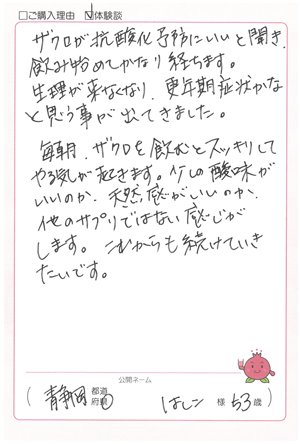 □ご購入理由 ☑体験談
ザクロが抗酸化予防にいいと聞き、
飲み始めてかなり経ちます。
生理が来なくなり、更年期症状かな
と思う事が出てきました。
毎朝、ザクロを飲むとスッキリして
やる気が起きます。少しの酸味が
いいのか、天然感がいいのか、
他のサプリではない感じが
します。これからも続けていき
たいです。
公開ネーム
(静岡 都道府県 はしこ 様 53歳)